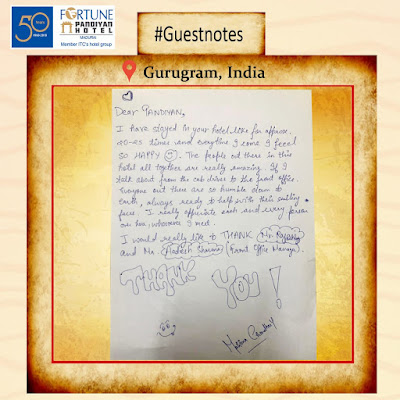 50
FORTUNE
PANDIYAN
HOTEL
MADURAI
Member ITC's hotel group
#Guestnotes
Gurugram, India
Dear PANDIYAN,
I have stayed in your hotel like for approx.
20-25 times and everytime I come I feel
SO HAPPY. The people out there in this
hotel all together are really amazing. If I
talk about from the cab driver to the front office.
Everyone out there are so humble down to
Earth, always ready to help with their smiling
faces. I really appreciate each and every person
over here, whomever I meet.
I would really like to THANK Mr.
and Mr. (Front Office Manager).
THANK YOU!